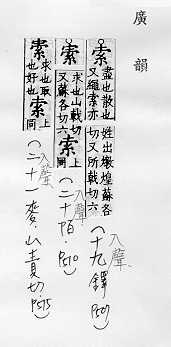 廣韻
索盡也散也又繩索亦姓出燉煌蘇各切又所戟切六
入聲
(十九鐸·P509)
索求也山戟切又蘇各切六索上同
入聲
(二十陌·P510)
索求也取也好也索上同
入聲
(二十一麥·山責切·P515)